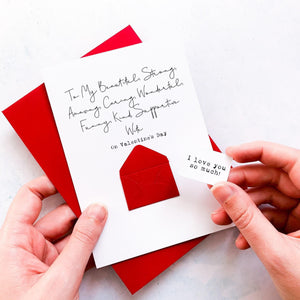 To My Beautiful, Strong,
Amazing, Caring, Wonderful,
Funny, Kind, Supportive
Wife
On Valentine's Day
I love you
so much!